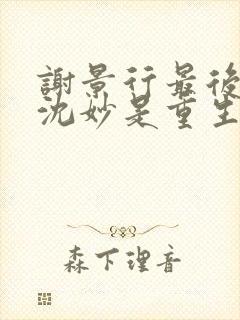 謝景行最後
沈妙是重生
森下理音